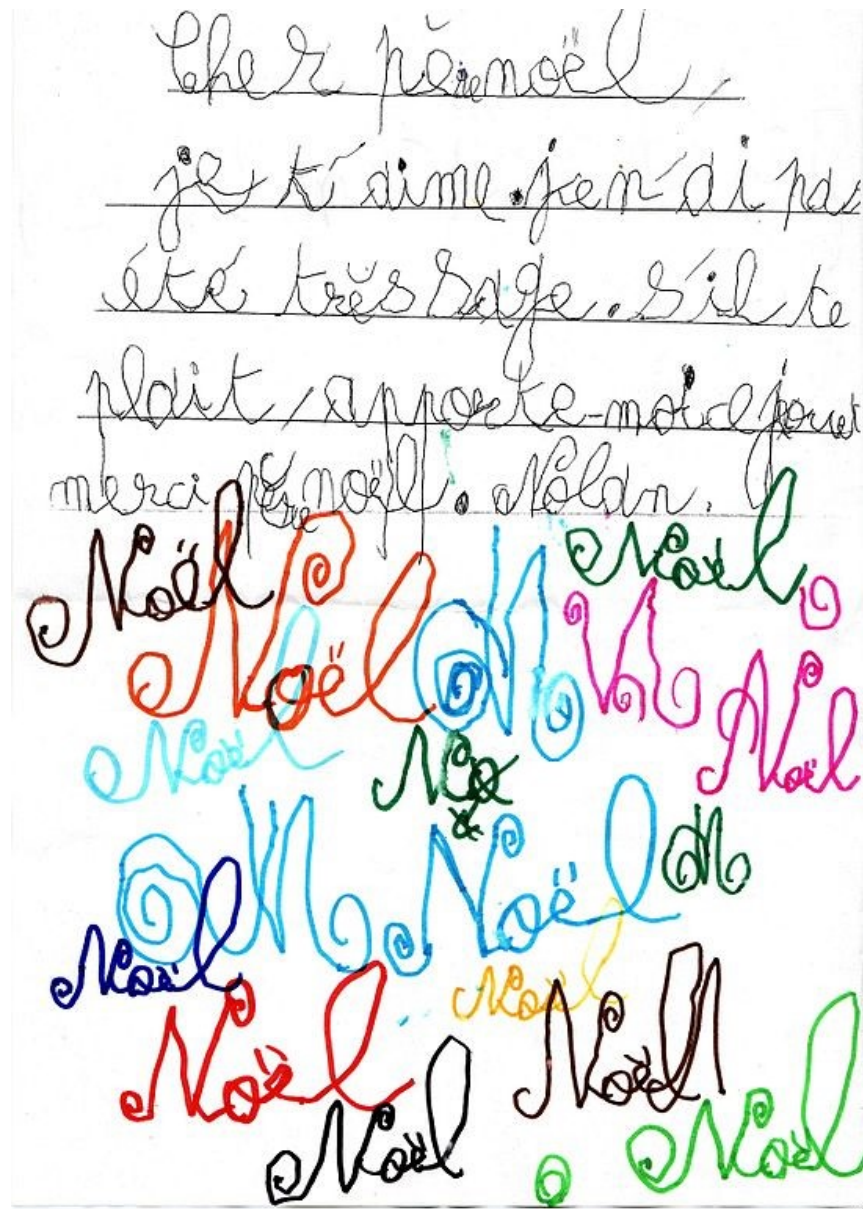 Cher père noël,
je t'aime. je n'ai pas
été très sage. S'il te
plait, apporte-moi ce jouet
merci père noël. Nolan.
Noël
Noël
Noël
N
N
Noël
Noël
No
N
Noël
N
Noël
Noël
Noël
Noël
Noël
Noël